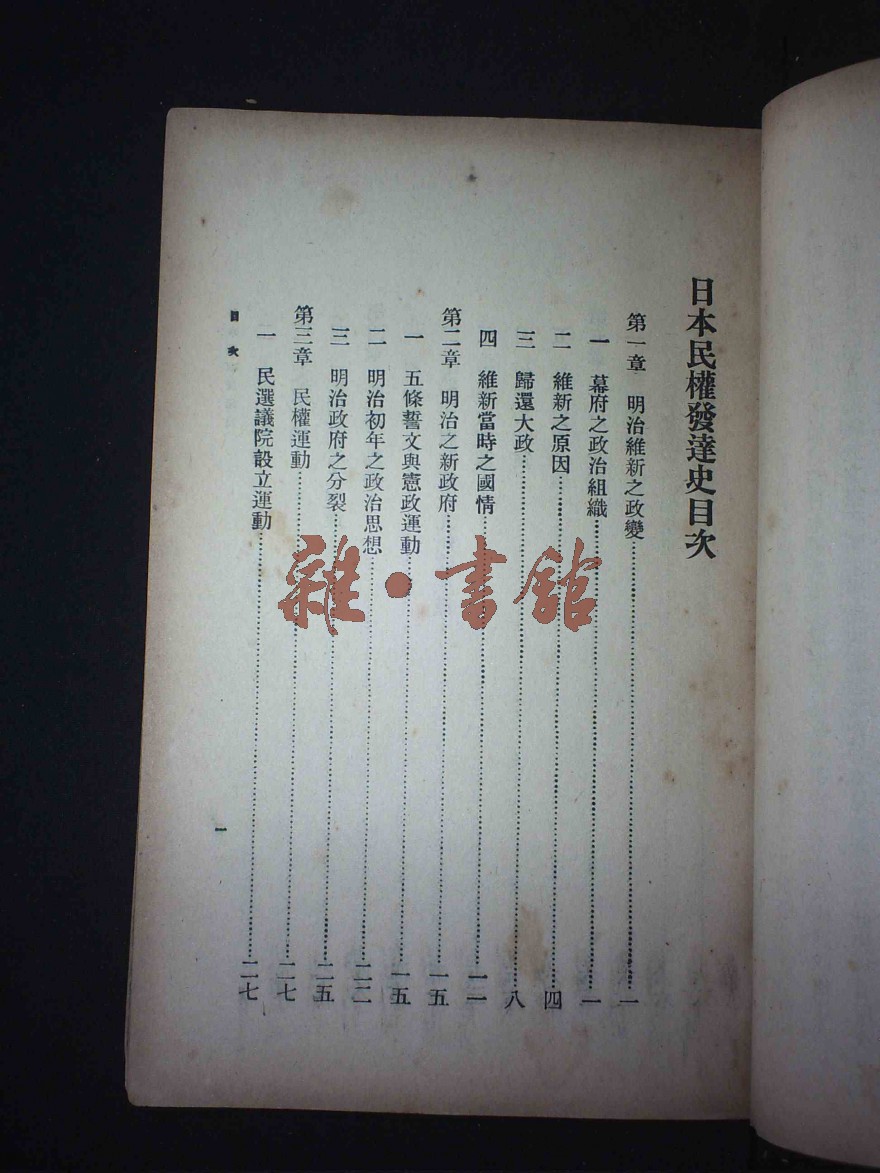 日本民權發達史目次
第一章 明治維新之政變……一
一 幕府之政治組織……一
二 維新之原因……四
三 歸還大政……八
四 維新當時之國情……一一
第二章 明治之新政府……一五
一 五條誓文與憲政運動……一五
二 明治初年之政治思想……二二
三 明治政府之分裂……二五
第三章 民權運動……二七
一 民選議院設立運動……二七
目次
一
雜·書館